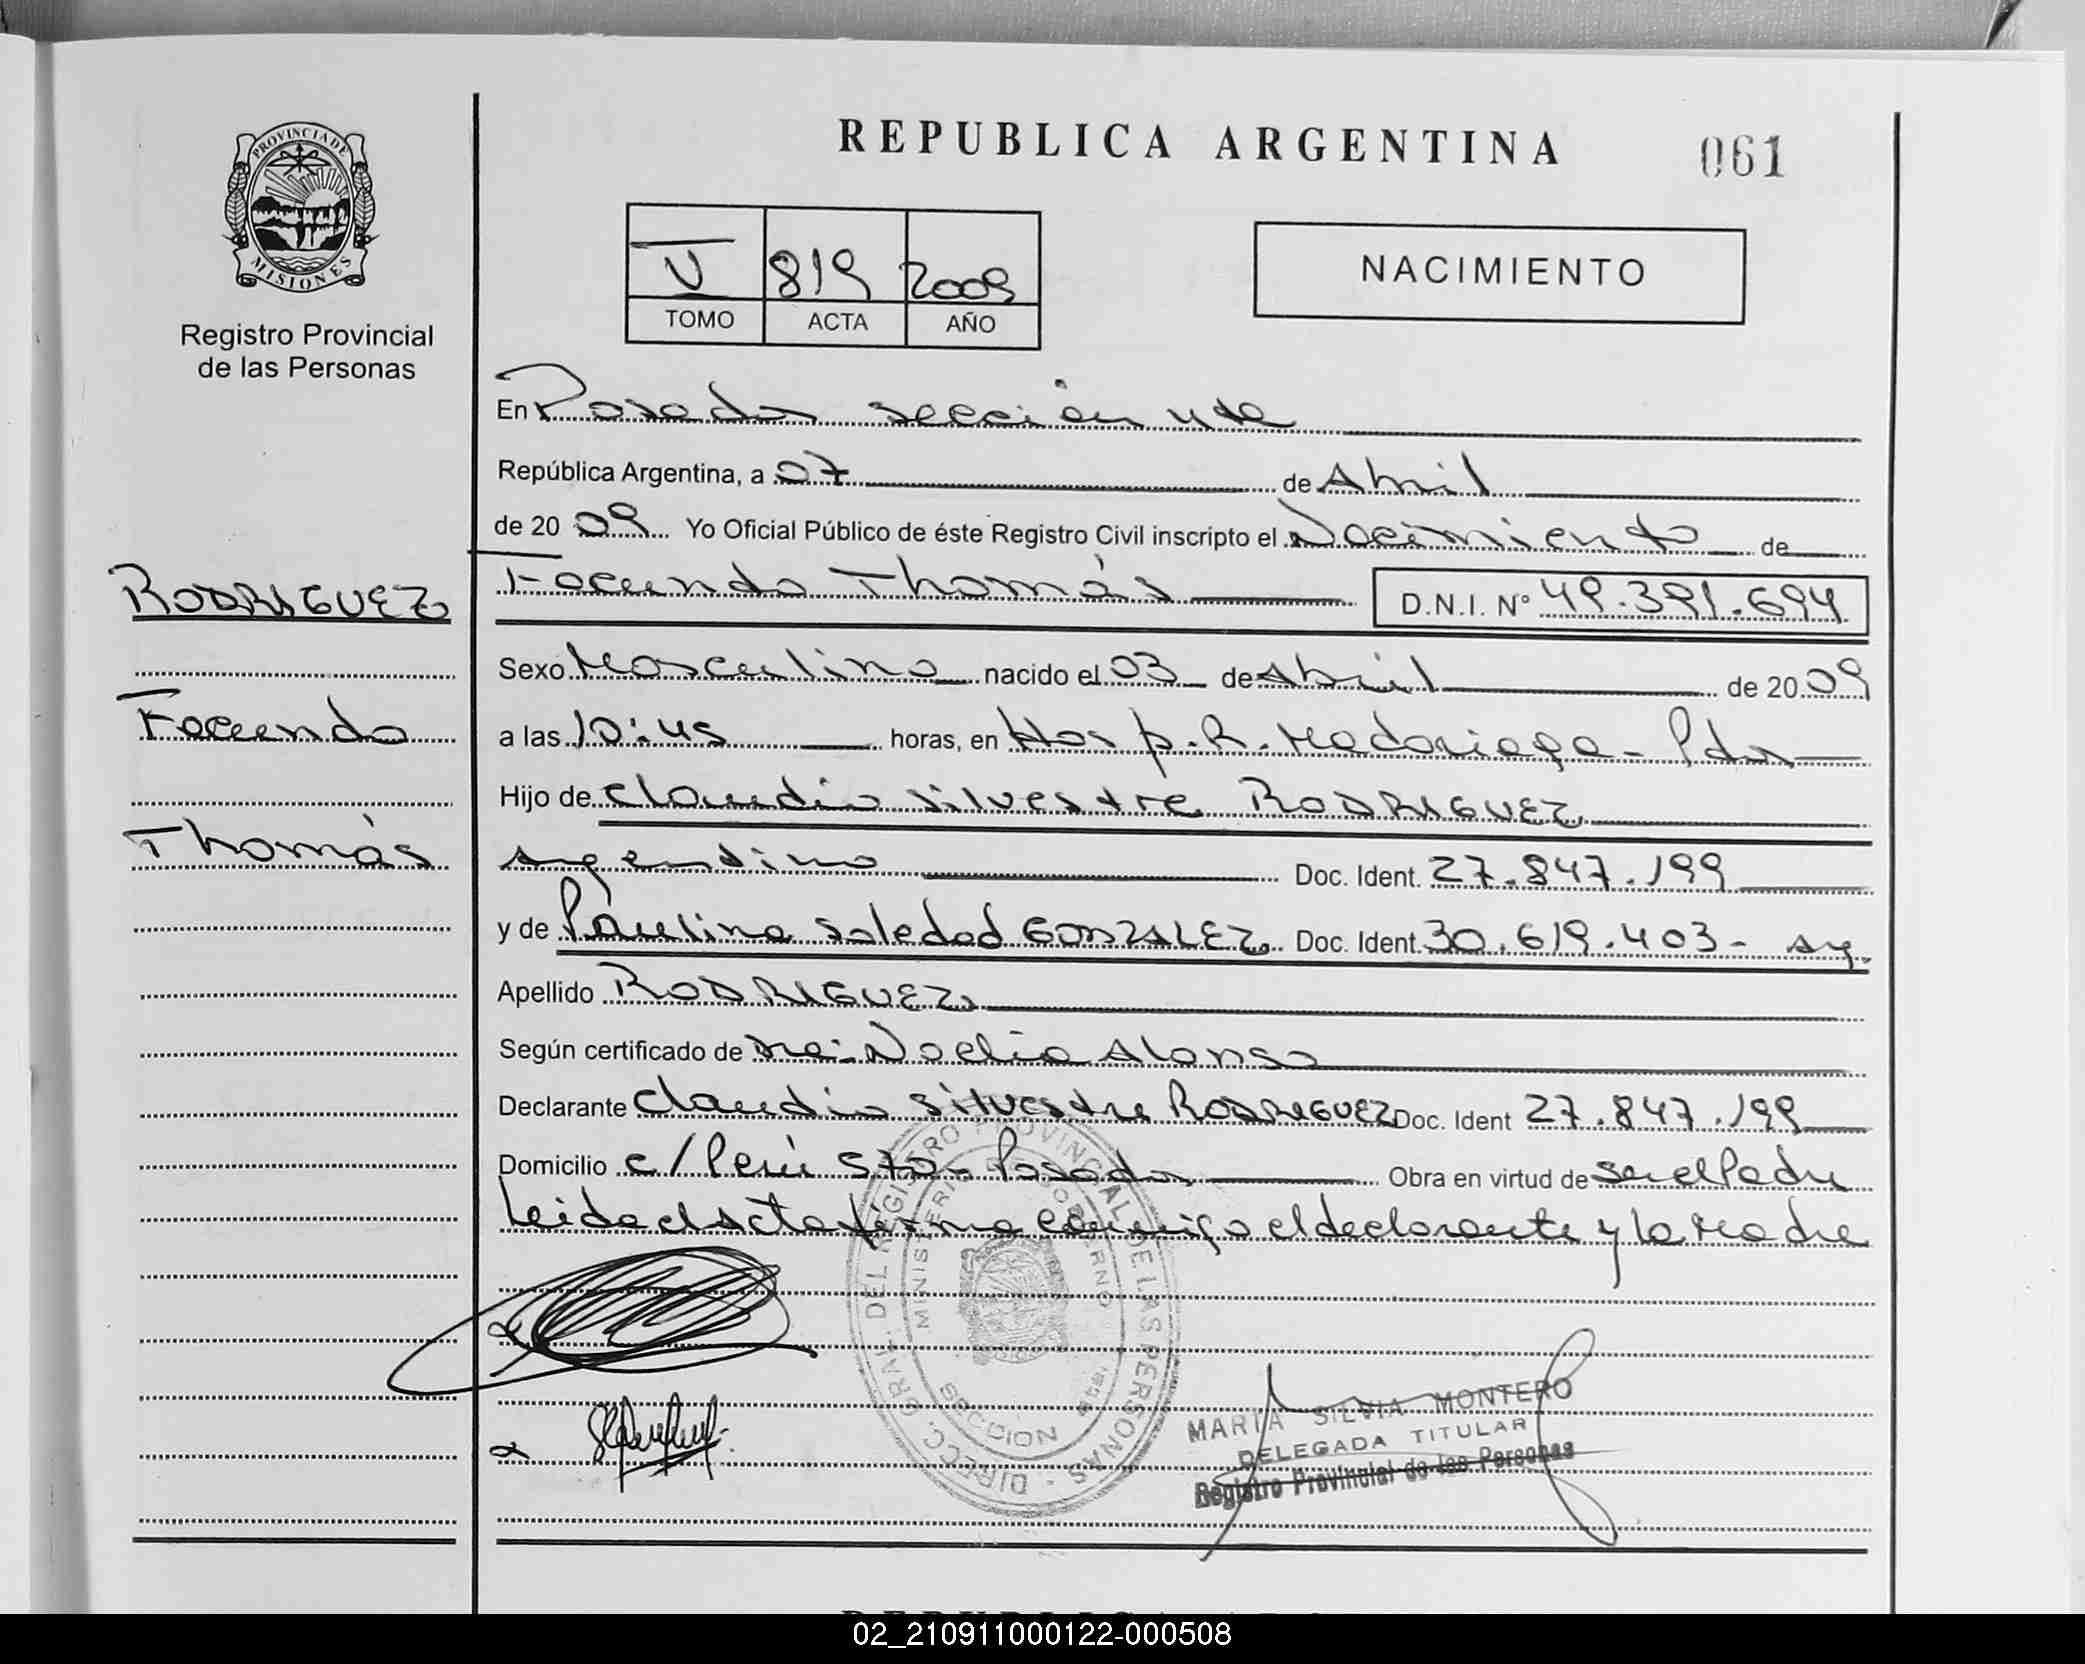 REPUBLICA ARGENTINA
061
PROVINCIA DE MISIONES
Registro Provincial
de las Personas
V 819 2009
TOMO ACTA AÑO
NACIMIENTO
En Posadas sección 4ta
República Argentina, a 07 de Abril
de 2009 Yo Oficial Público de éste Registro Civil inscripto el Nacimiento de
Facundo Thomás D.N.I. N° 49.391.694
RODRIGUEZ
Facundo
Thomás
Sexo Masculino nacido el 03 de Abril de 2009
a las 10:45 horas, en Hosp. R. Madariaga - Pdas
Hijo de Claudio Silvestre RODRIGUEZ
argentino Doc. Ident. 27.847.199
y de Paulina Soledad GONZALEZ Doc. Ident. 30.619.403 - arg.
Apellido RODRIGUEZ
Según certificado de Noelia Alonso
Declarante Claudio Silvestre RODRIGUEZ Doc. Ident 27.847.199
Domicilio c/ Perú 570 - Posadas Obra en virtud de ser el Padre
Leida el acta firma conmigo el declarante y la Madre
DIRECC. GRAL. DEL REGISTRO PROVINCIAL DE LAS PERSONAS
MINISTERIO GOBIERNO
SECCIÓN
MARIA SILVIA MONTERO
DELEGADA TITULAR
Registro Provincial de las Personas
02_210911000122-000508